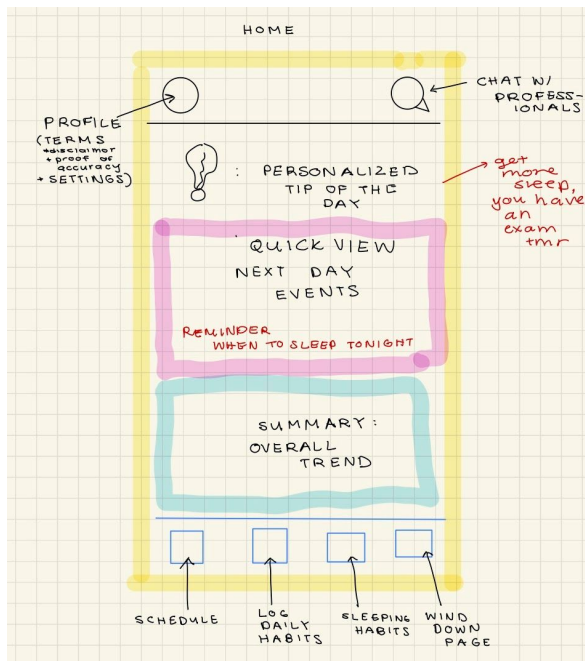 HOME
CHAT W/
PROFESS-
IONALS
PROFILE
(TERMS
+disclaimor
+ proof of
accuracy
+ SETTINGS)
: PERSONALIZED
TIP OF THE
DAY
get
more
sleep,
you have
an
exam
tmr
QUICK VIEW
NEXT DAY
EVENTS
REMINDER
WHEN TO SLEEP TONIGHT
SUMMARY:
OVERALL
TREND
SCHEDULE
LOG
DAILY
HABITS
SLEEPING
HABITS
WIND
DOWN
PAGE